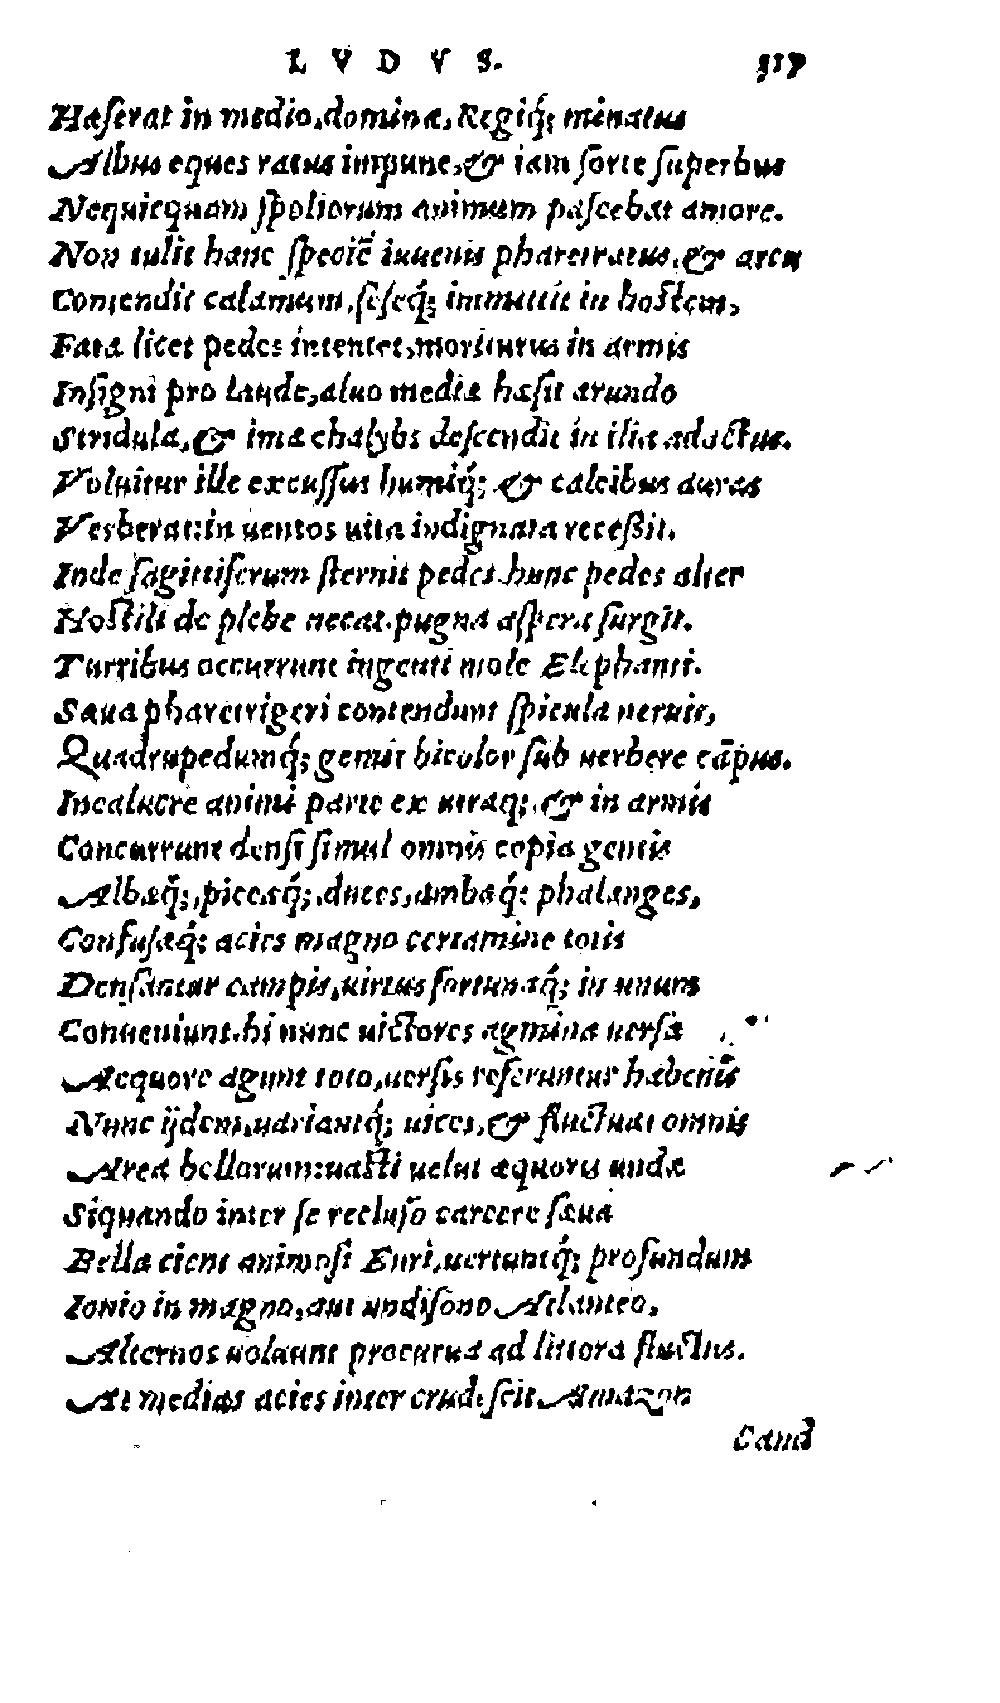 LVDVS. 317
Hæserat in medio, dominæ, Regiq́; minatus
Albus eques ratus impune, & iam sorte superbus
Nequicquam spoliorum animum pascebat amore.
Non tulit hanc speciẽ iuuenis pharetratus, & arcu
Contendit calamum, seseq́; immittit in hostem,
Fata licet pedes intentet, moriturus in armis
Insigni pro laude, aluo media hæsit arundo
Stridula, & ima chalybs descendit in ilia adactus.
Voluitur ille excussus humiq́; & calcibus auras
Verberat: in uentos uita indignata recessit.
Inde sagittiferum sternit pedes. hunc pedes alter
Hostili de plebe necat. pugna aspera surgit.
Turribus occurrunt ingenti mole Elephanti.
Sæua pharetrigeri contendunt spicula neruis,
Quadrupedumq́; gemit bicolor sub uerbere cãpus.
Incaluere animi parte ex utraq;, & in armis
Concurrunt densi simul omnis copia gentis
Albæq́;, piceæq́;, duces, ambæq́; phalanges,
Confusæq́; acies magno certamine totis
Densantur campis, uirtus fortunaq́; in unum
Conueniunt. hi nunc uictores agmina uersa
Aequore agunt toto, uersis referuntur habenis
Nunc ijdem, uariantq́; uices, & fluctuat omnis
Area bellorum: uasti uelut æquoris undæ
Siquando inter se recluso carcere sæua
Bella cient animosi Euri, uertuntq́; profundum
Ionio in magno, aut undisono Atlanteo,
Alternos uoluunt procurua ad littora fluctus.
At medias acies inter crudescit Amazon
Cand